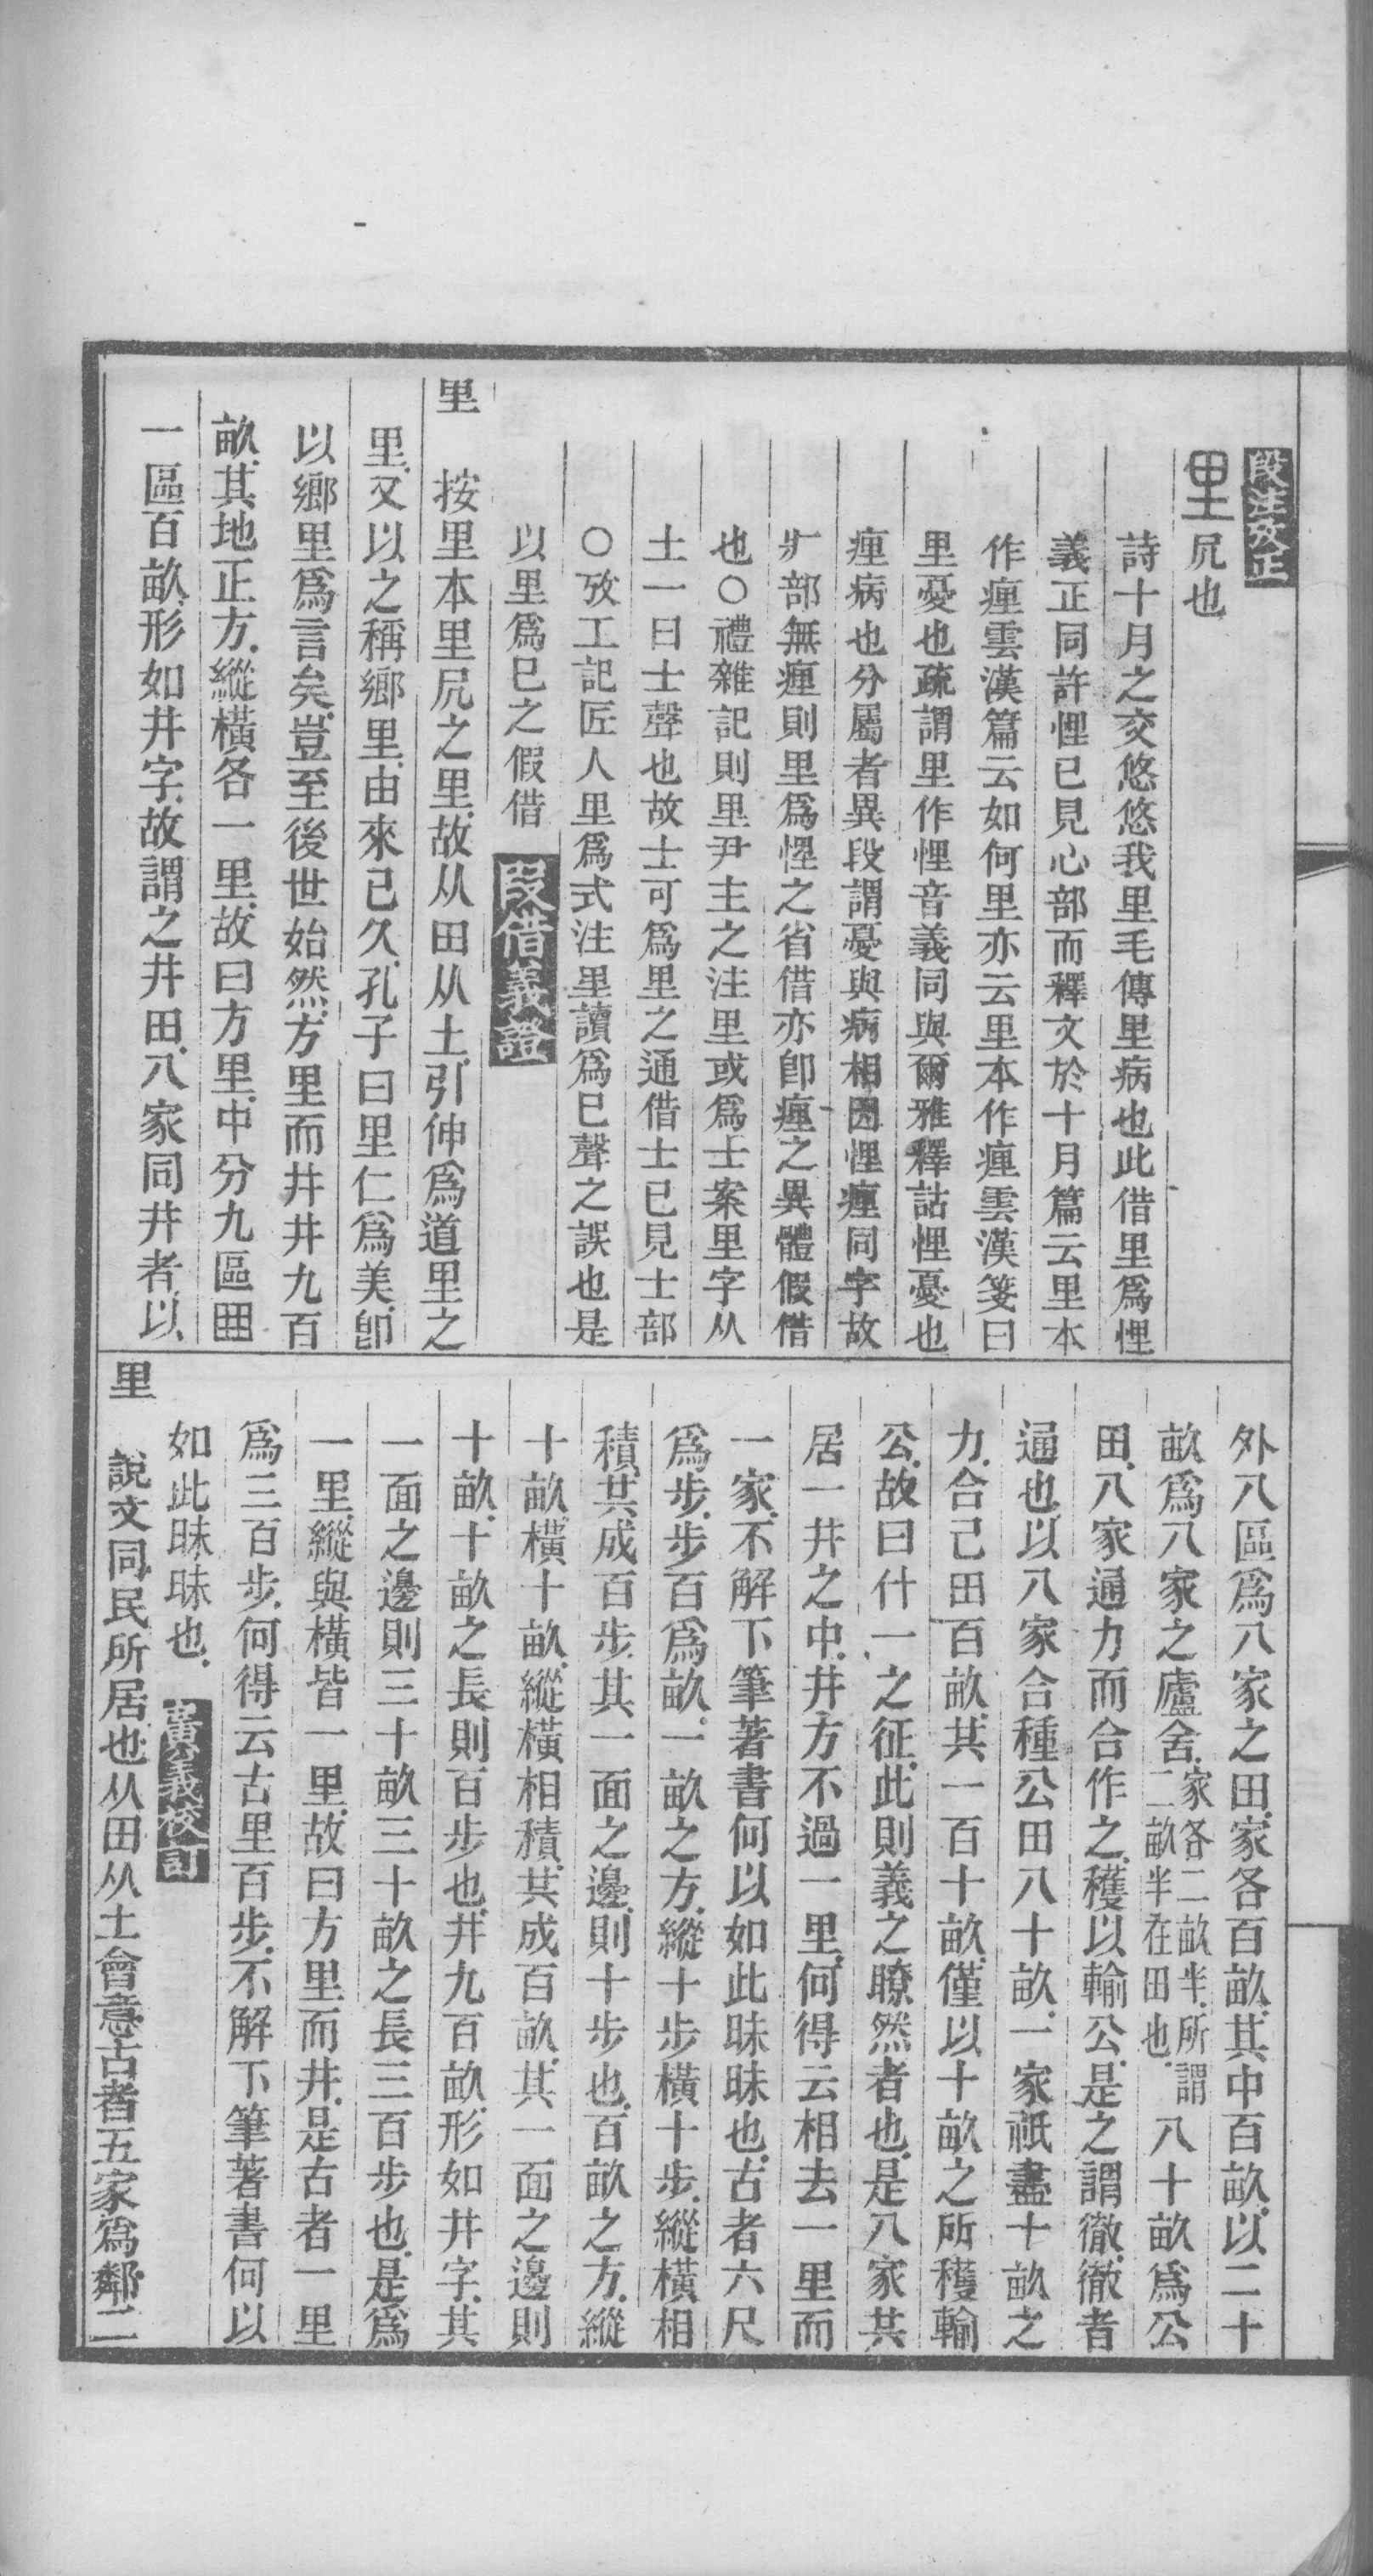 段注攷正
里凥也
詩十月之交悠悠我里毛傳里病也此借里爲悝
義正同許悝已見心部而釋文於十月篇云里本
作㾖雲漢篇云如何里亦云里本作㾖雲漢箋曰
里憂也疏謂里作悝音義同與爾雅釋詁悝憂也
㾖病也分屬者異段謂憂與病相因悝㾖同字故
疒部無㾖則里爲悝之省借亦卽㾖之異體假借
也○禮雜記則里尹主之注里或爲士案里字从
土一曰士聲也故士可爲里之通借士已見士部
○攷工記匠人里爲式注里讀爲已聲之誤也是
以里爲已之假借 叚借義證
里 按里本里凥之里.故从田从土.引伸爲道里之
里.又以之稱鄉里.由來已久.孔子曰里仁爲美.卽
以鄉里爲言矣.豈至後世始然.方里而井.井九百
畝.其地正方.縱橫各一里.故曰方里.中分九區囲
一區百畝.形如井字.故謂之井田.八家同井者.以
外八區爲八家之田.家各百畝.其中百畝.以二十
畝爲八家之廬舍.家各二畝半.所謂二畝半在田也.八十畝爲公
田.八家通力而合作之.穫以輸公.是之謂徹.徹者
通也.以八家合種公田八十畝.一家祇盡十畝之
力.合己田百畝.其一百十畝.僅以十畝之所穫輸
公.故曰什一之征.此則義之瞭然者也.是八家共
居一井之中.井方不過一里.何得云相去一里而
一家.不解下筆著書何以如此昧昧也.古者六尺
爲步.步百爲畝.一畝之方.縱十步橫十步.縱橫相
積.其成百步.其一面之邊.則十步也.百畝之方.縱
十畝.橫十畝.縱橫相積.其成百畝.其一面之邊則
十畝.十畝之長則百步也.井九百畝.形如井字.其
一面之邊則三十畝.三十畝之長三百步也.是爲
一里.縱與橫皆一里.故曰方里而井.是古者一里
爲三百步.何得云古里百步.不解下筆著書何以
如此昧昧也. 廣義校訂
里 說文同.民所居也.从田从土會意.古者五家爲鄰.二